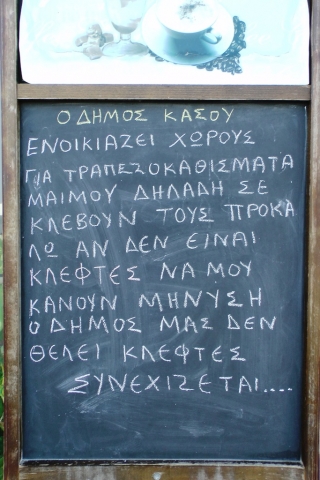 Ο ΔΗΜΟΣ ΚΑΣΟΥ
ΕΝΟΙΚΙΑΖΕΙ ΧΩΡΟΥΣ
ΓΙΑ ΤΡΑΠΕΖΟΚΑΘΙΣΜΑΤΑ
ΜΑΙΜΟΥ ΔΗΛΑΔΗ ΣΕ
ΚΛΕΒΟΥΝ ΤΟΥΣ ΠΡΟΚΑ
ΛΩ ΑΝ ΔΕΝ ΕΙΝΑΙ
ΚΛΕΦΤΕΣ ΝΑ ΜΟΥ
ΚΑΝΟΥΝ ΜΗΝΥΣΗ
Ο ΔΗΜΟΣ ΜΑΣ ΔΕΝ
ΘΕΛΕΙ ΚΛΕΦΤΕΣ
ΣΥΝΕΧΙΖΕΤΑΙ....